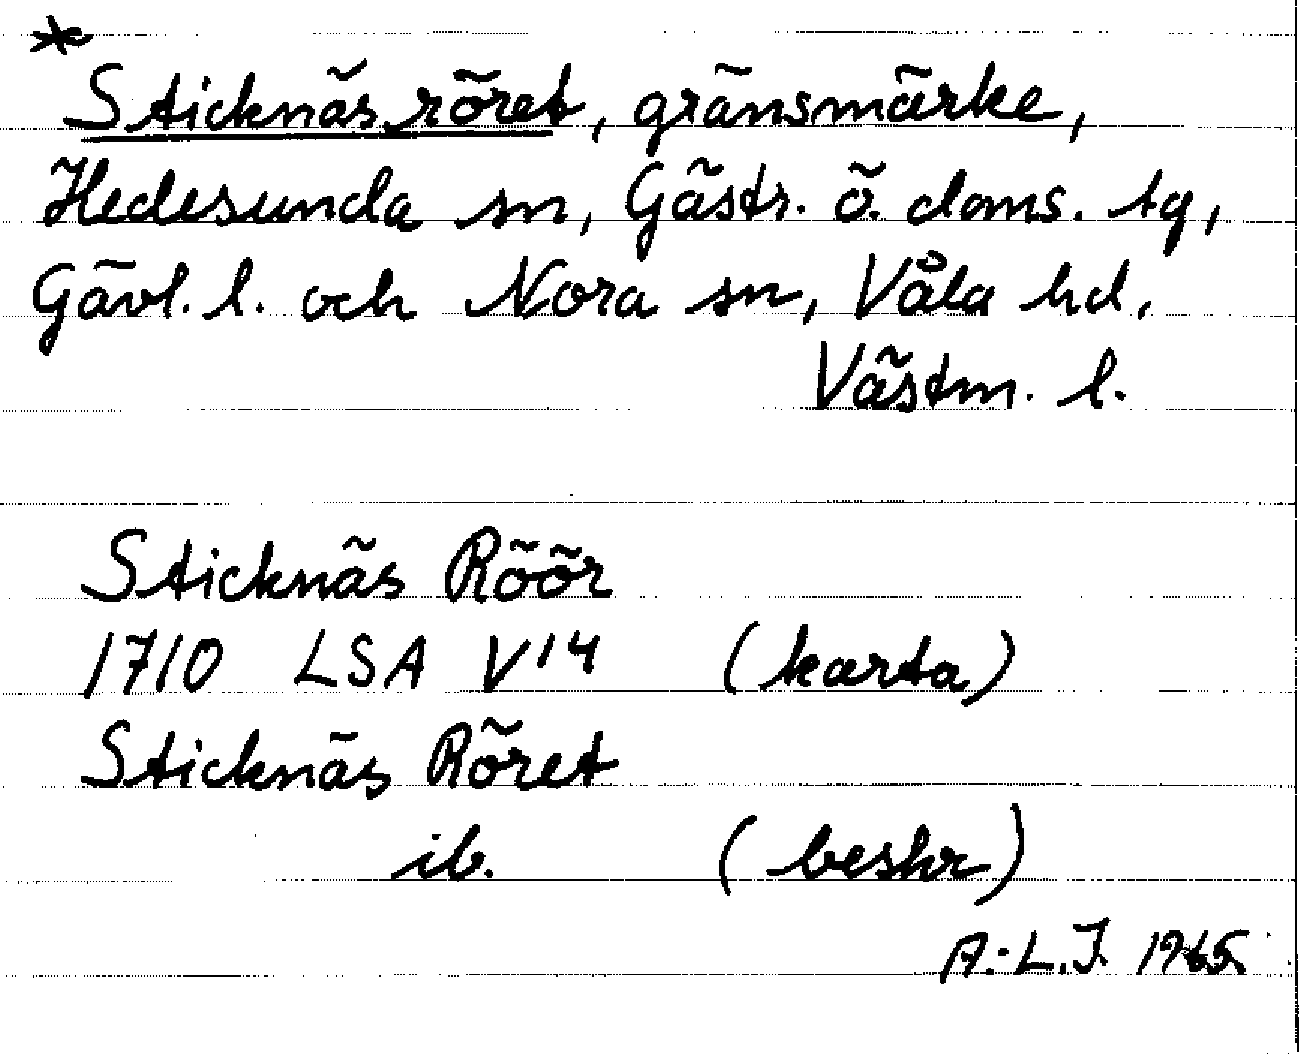 *
Sticknäsröret, gränsmärke,
Hedesunda sn, Gästr. ö. doms. tg,
Gävl. l. och Nora sn, Våla hd,
Västm. l.
Sticknäs Röör
1710 LSA V14 (karta)
Sticknäs Röret
ib. (beskr)
A.-L.J. 1965